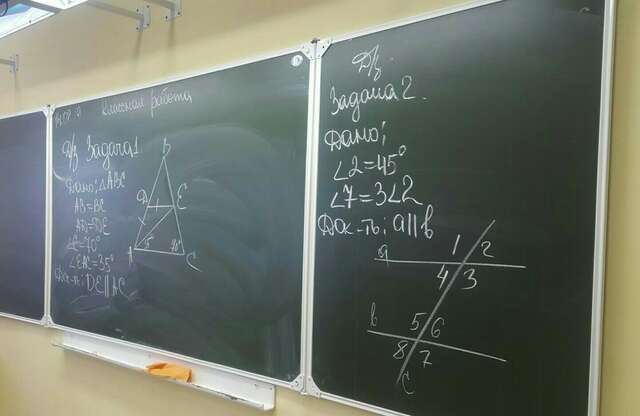 Классная работа
Д/з Задача 1
Дано: △ABC
AB=BC
AD=DE
∠C=70°
∠EAC=35°
Док-ть: DE || AC
B
D
E
A
C
Д/з.
Задача 2.
Дано:
∠2=45°
∠7=3∠2
Док-ть: a||b
1 2
a
4 3
b
5 6
8 7
c